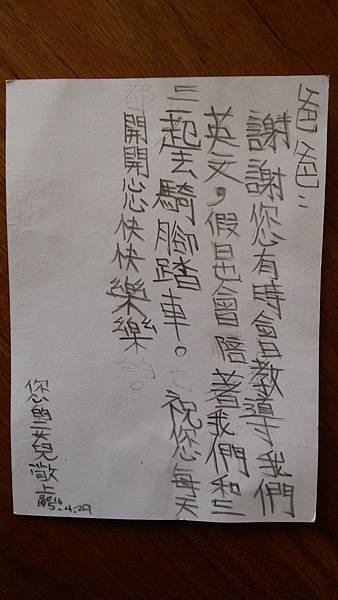 爸爸：
謝謝您有時會教導我們
英文，假日會陪著我們和三
三起去騎腳踏車。祝您每天
都開開心心快快樂樂的。
您的女兒敬上
4.29